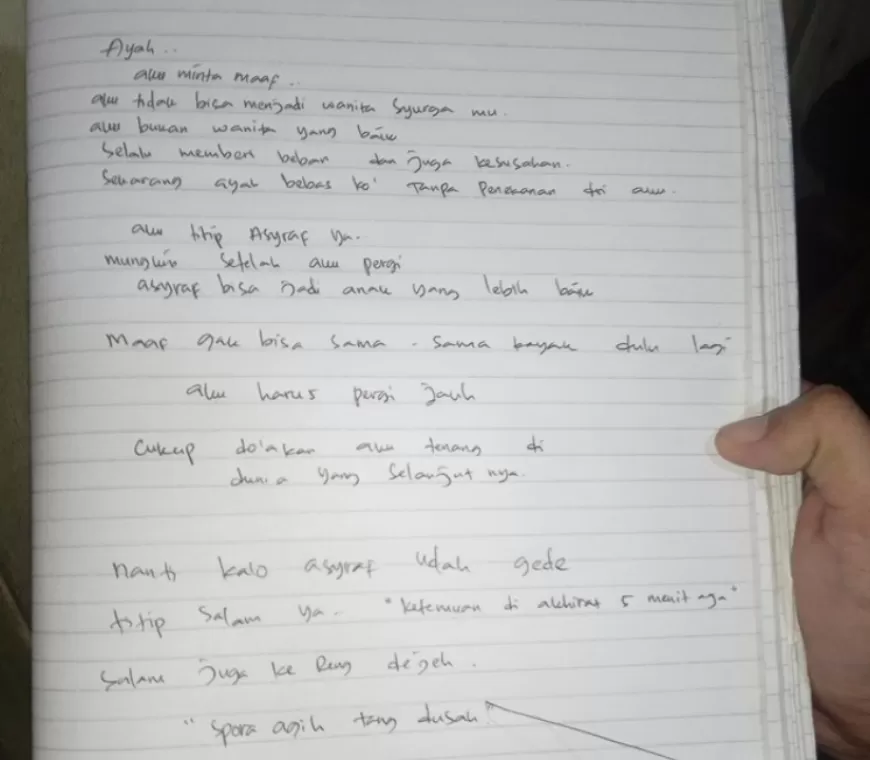 Ayah..
aku minta maaf..
aku tidak bisa menjadi wanita syurga mu.
aku bukan wanita yang baik
Selalu memberi beban dan juga kesusahan.
Sekarang ayah bebas ko' Tanpa Penekanan dri aku.
aku titip Asyraf ya.
mungkin setelah aku pergi
asyraf bisa jadi anak yang lebih baik
Maaf gak bisa sama - sama kayak dulu lagi
aku harus pergi jauh
Cukup do'akan aku tenang di
dunia yang selanjut nya.
nanti kalo asyraf udah gede
titip salam ya. "ketemuan di akhirat 5 menit aja"
Salam juga ke
"